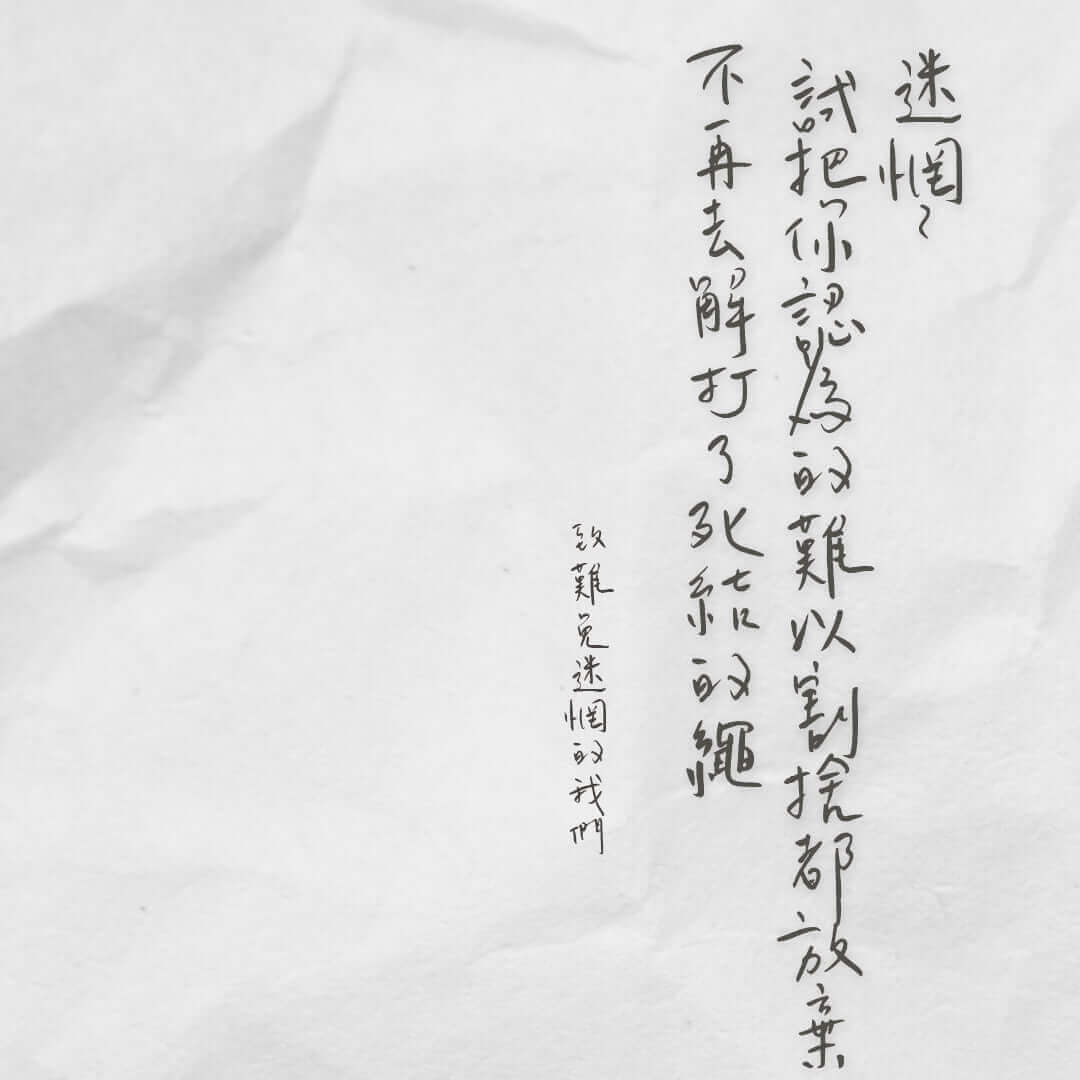 迷惘、
試把你認為的難以割捨都放棄
不再去解打了死結的繩
致難免迷惘的我們